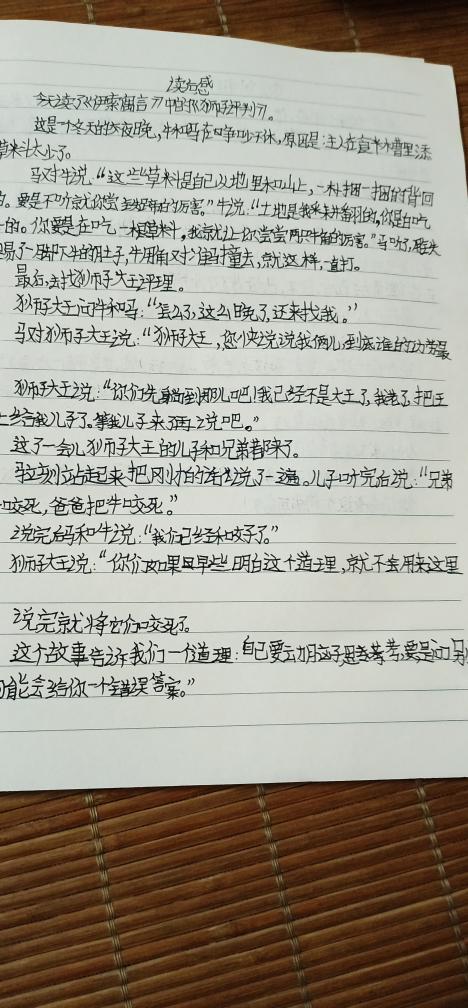 读后感
今天读了《伊索寓言》中的《狮子评判》。
这是一个冬天的傍晚,牛和马在争吵不休,原因是:主人在食草槽里添
草料太少了。
马对牛说:“这些草料是自己从地里和山上,一捆一捆的背回
的。要是不听就你尝尝的厉害。”牛说:“土地是我来翻的,你是白吃
的。你要是在吃一根草料,我就让你尝尝两只牛角的厉害。”马听了,
易了一脚下牛的肚子,牛用角对准马撞去,就这样,一直打。
最后,去找狮子大王评理。
狮子大王问牛和马:“怎么了,这么晚了,还来找我。”
马对狮子大王说:“狮子大王,您快说说我俩,到底谁的功劳最
狮子大王说:“你们先躺到那儿吧!我已经不是大王了,我老了,把王
给我儿子了。等我儿子来了再说吧。”
这了一会儿狮子大王的儿子和兄弟都来了。
马立刻站起来把刚才的话说了一遍。儿子听完后说:“兄弟
咬死,爸爸把牛咬死。”
说完后马和牛说:“我们已经和好了。”
狮子大王说:“你们如果早些明白这个道理,就不会用来这里
说完就将它们咬死了。
这个故事告诉我们一个道理:自己要动脑子思考,要是问别
可能会给你一个错误答案。”